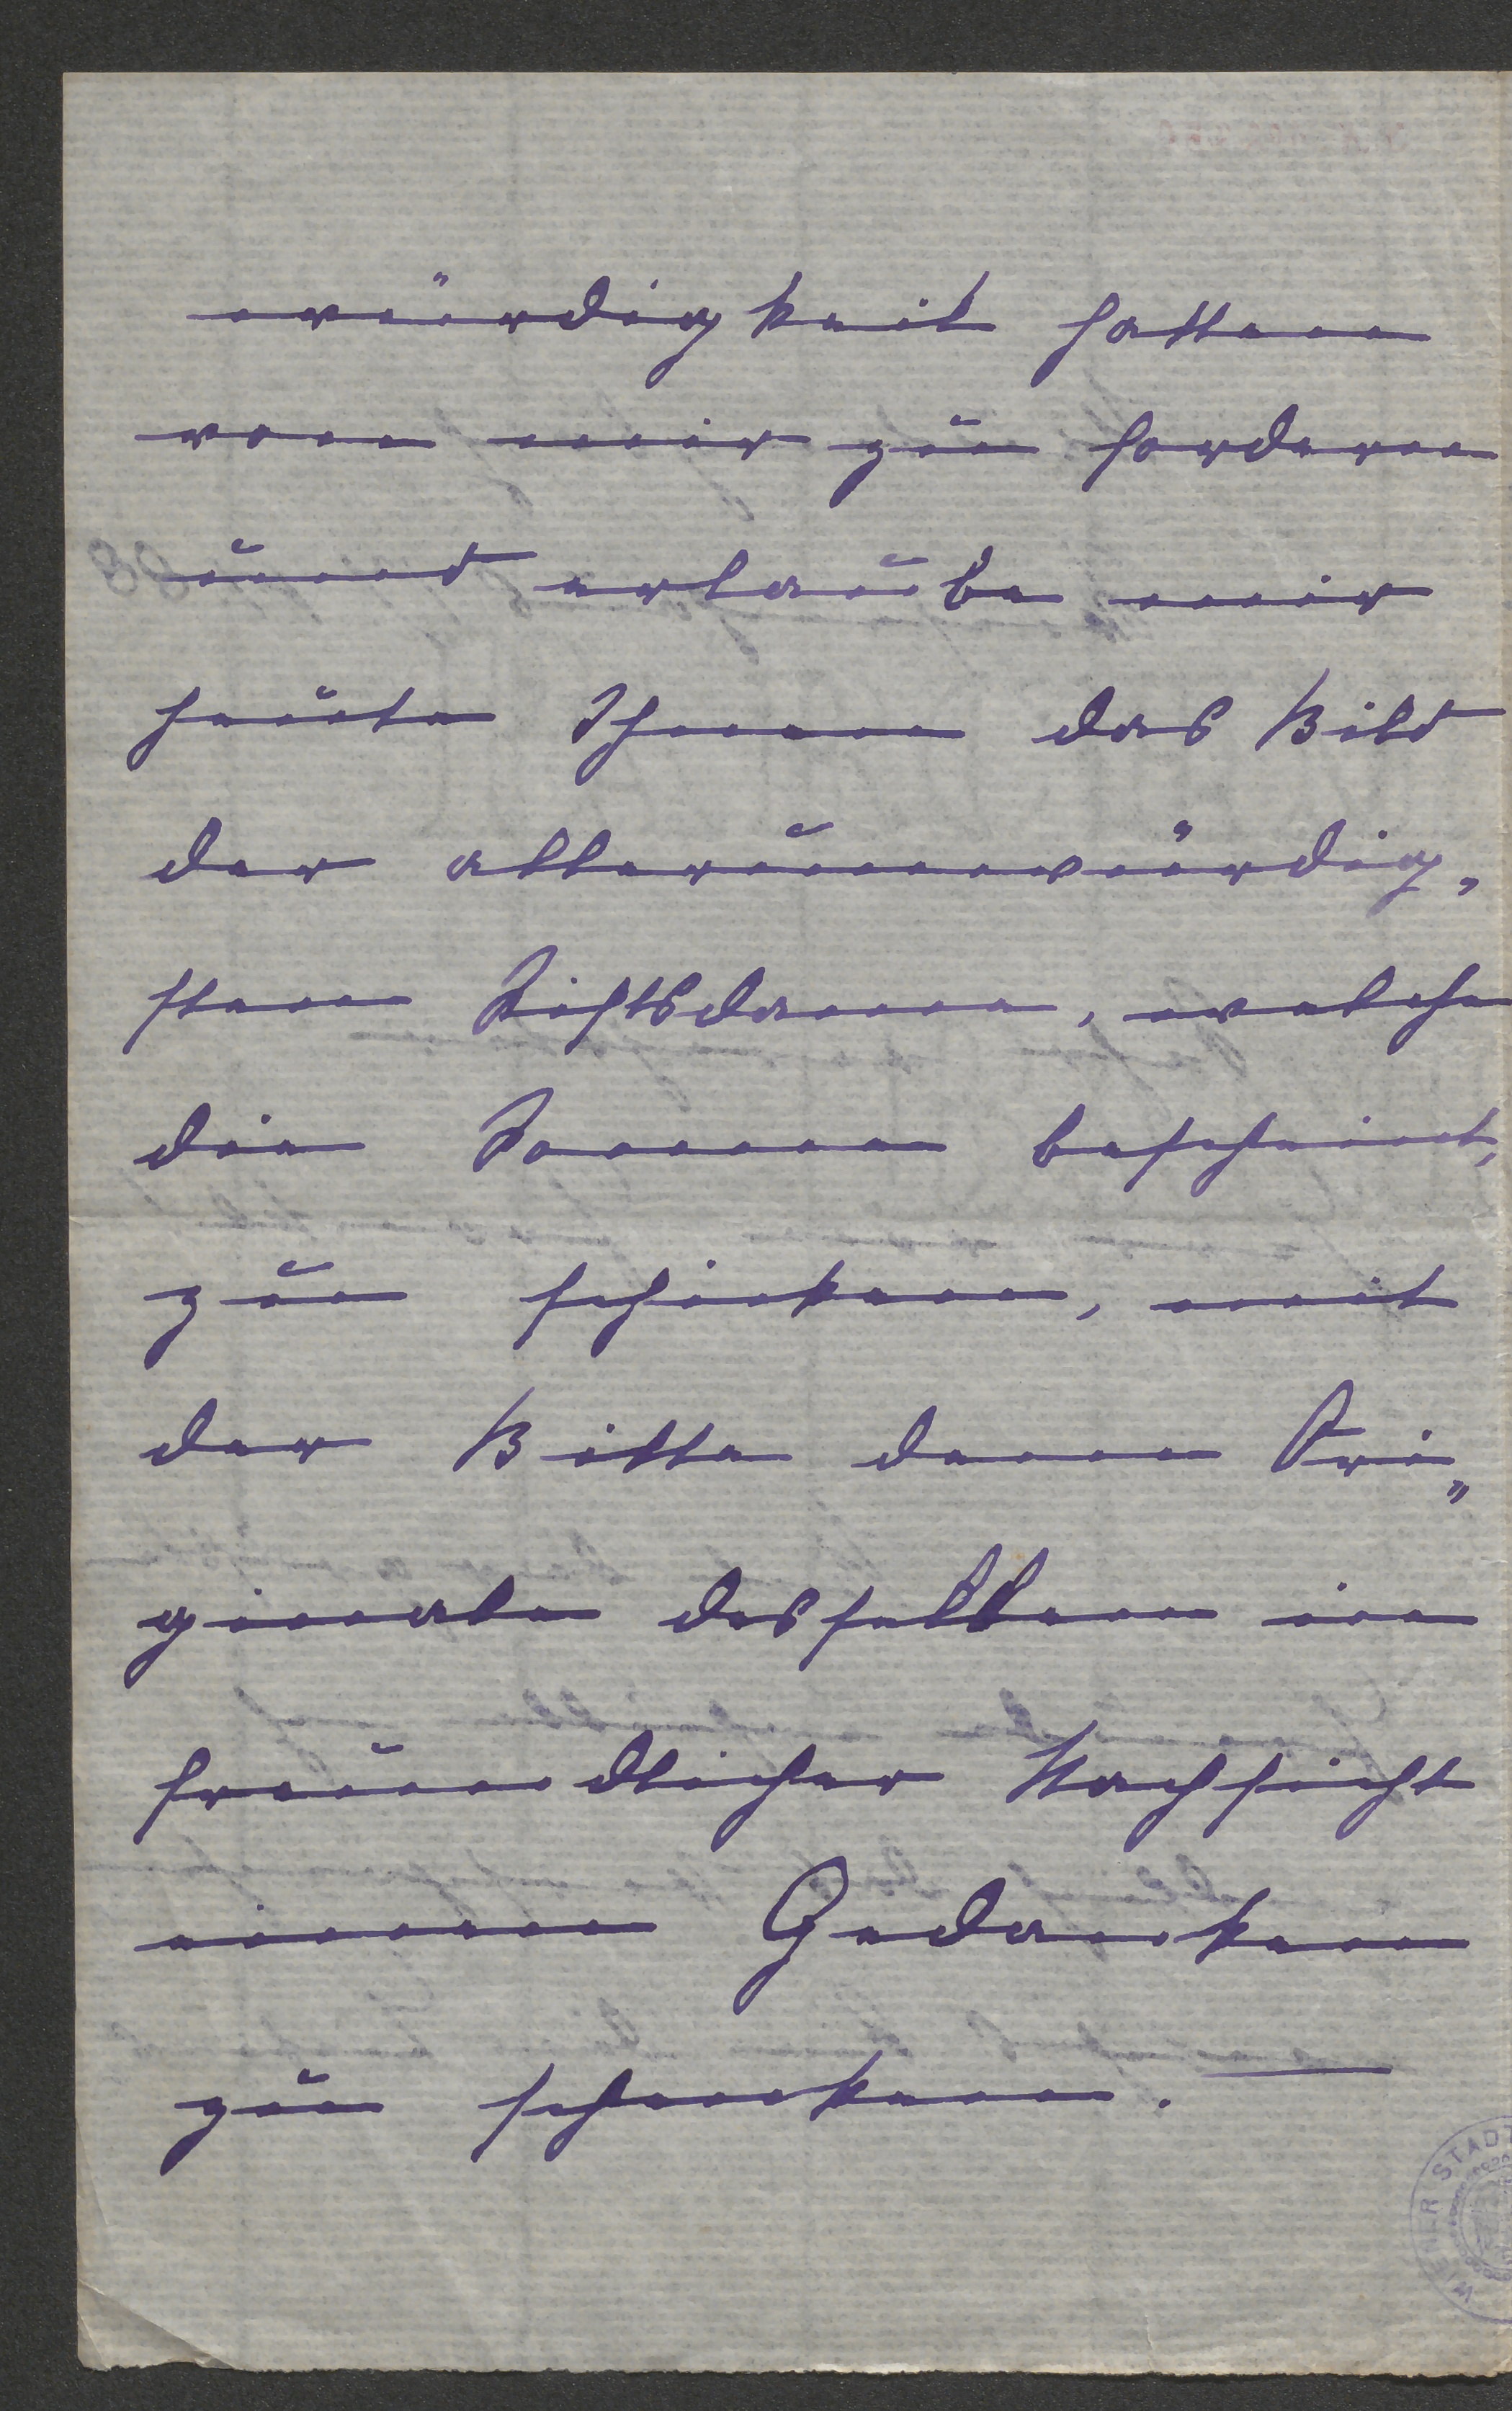 würdigkeit hatten
von mir zu fordern
und erlaube mir
heute Ihnen das Bild
der allerunwürdig-
sten Stiftsdame, welche
die Sonne bescheint,
zu schicken, mit
der Bitte dem Ori-
ginale desselben in
freundlicher Nachsicht
einen Gedanken
zu schenken. —
WIENER STADT